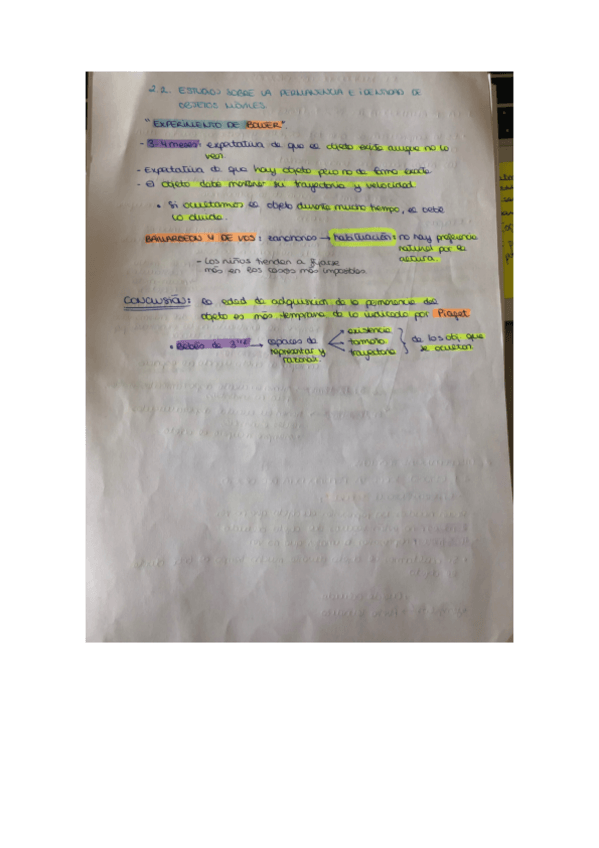 2.2. ESTUDIOS SOBRE LA PERMANENCIA E IDENTIDAD DE
OBJETOS MÓVILES
"EXPERIMENTO DE BOWER"
- 3-4 meses: expectativa de que el objeto existe aunque no lo
ven.
- Expectativa de que hay objeto pero no de forma exacta.
- El objeto debe mantener su trayectoria y velocidad.
• Si ocultamos el objeto durante mucho tiempo, el bebé
lo olvida.
BAILLARGEON Y DE VOS: zanahorias → habituación: no hay preferencia
natural por la
altura.
- Los niños tienden a fijarse
más en los casos más imposibles.
CONCLUSIÓN: la edad de adquisición de la permanencia del
objeto es más temprana de lo indicado por Piaget.
• Bebés de 3 → capaces de
representar y
razonar
existencia
tamaño
trayectoria
de los obj. que
se ocultan.